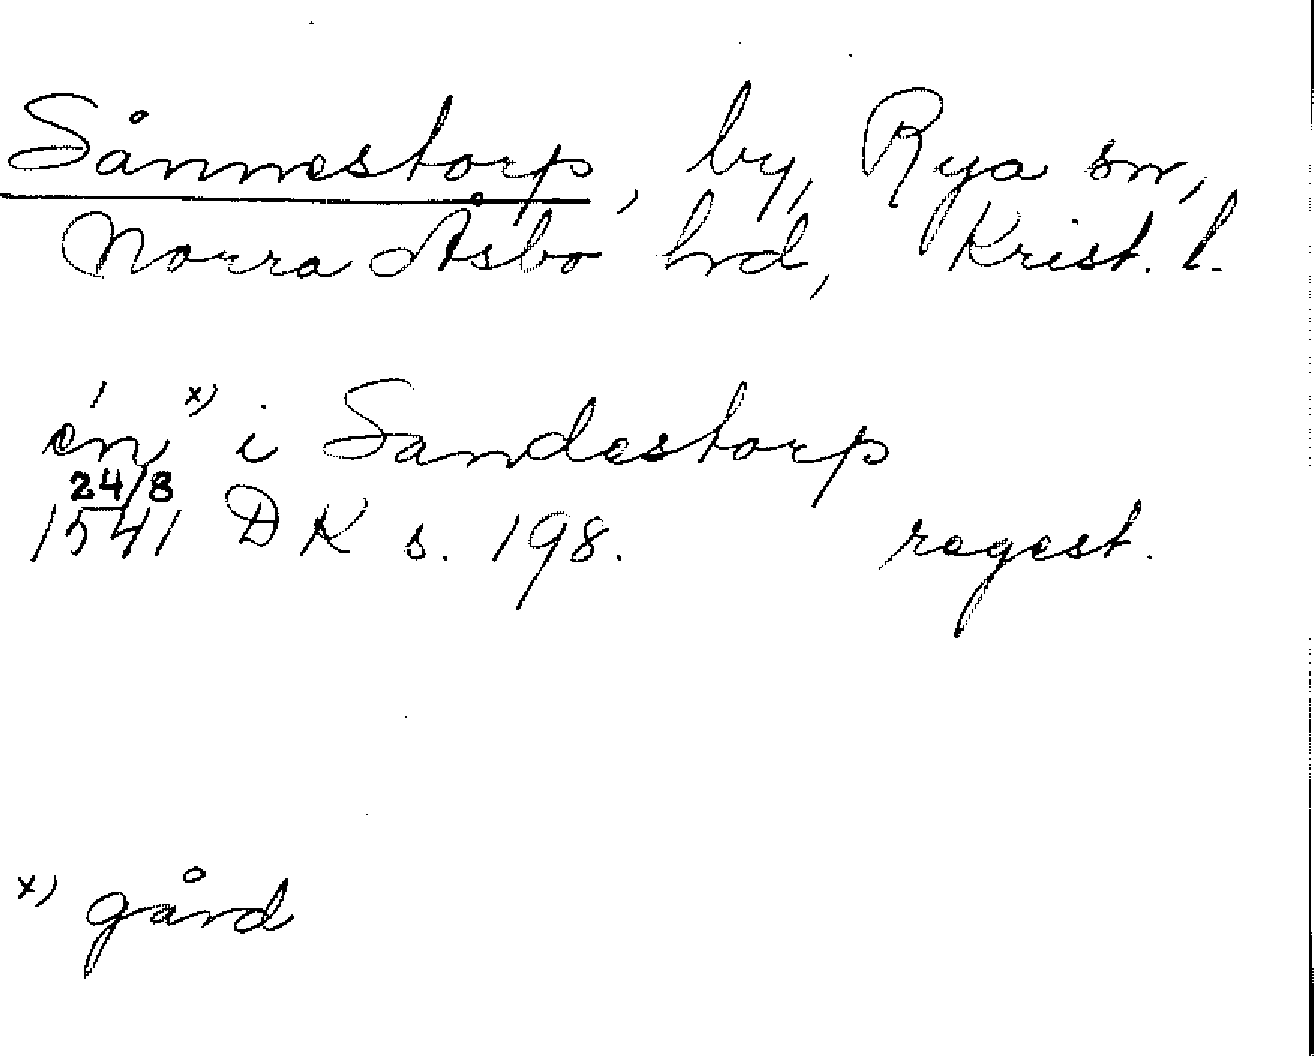 Sånnestorp, by, Rya sn,
Norra Åsbo hrd, Krist. l.
én x) i Sandestorp
24/8
1541 DK s. 198. regest.
x) gård